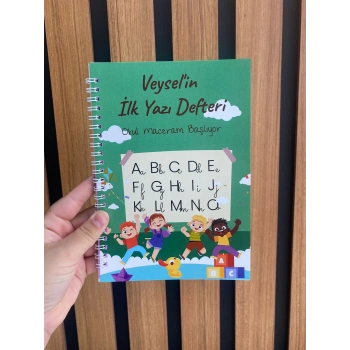 Veysel'in
İlk Yazı Defteri
Okul Maceram Başlıyor
Aa Bb Cc Dd Ee
Ff Gg Hh Iı Jj
Kk Ll Mm Nn Oo
A
B C